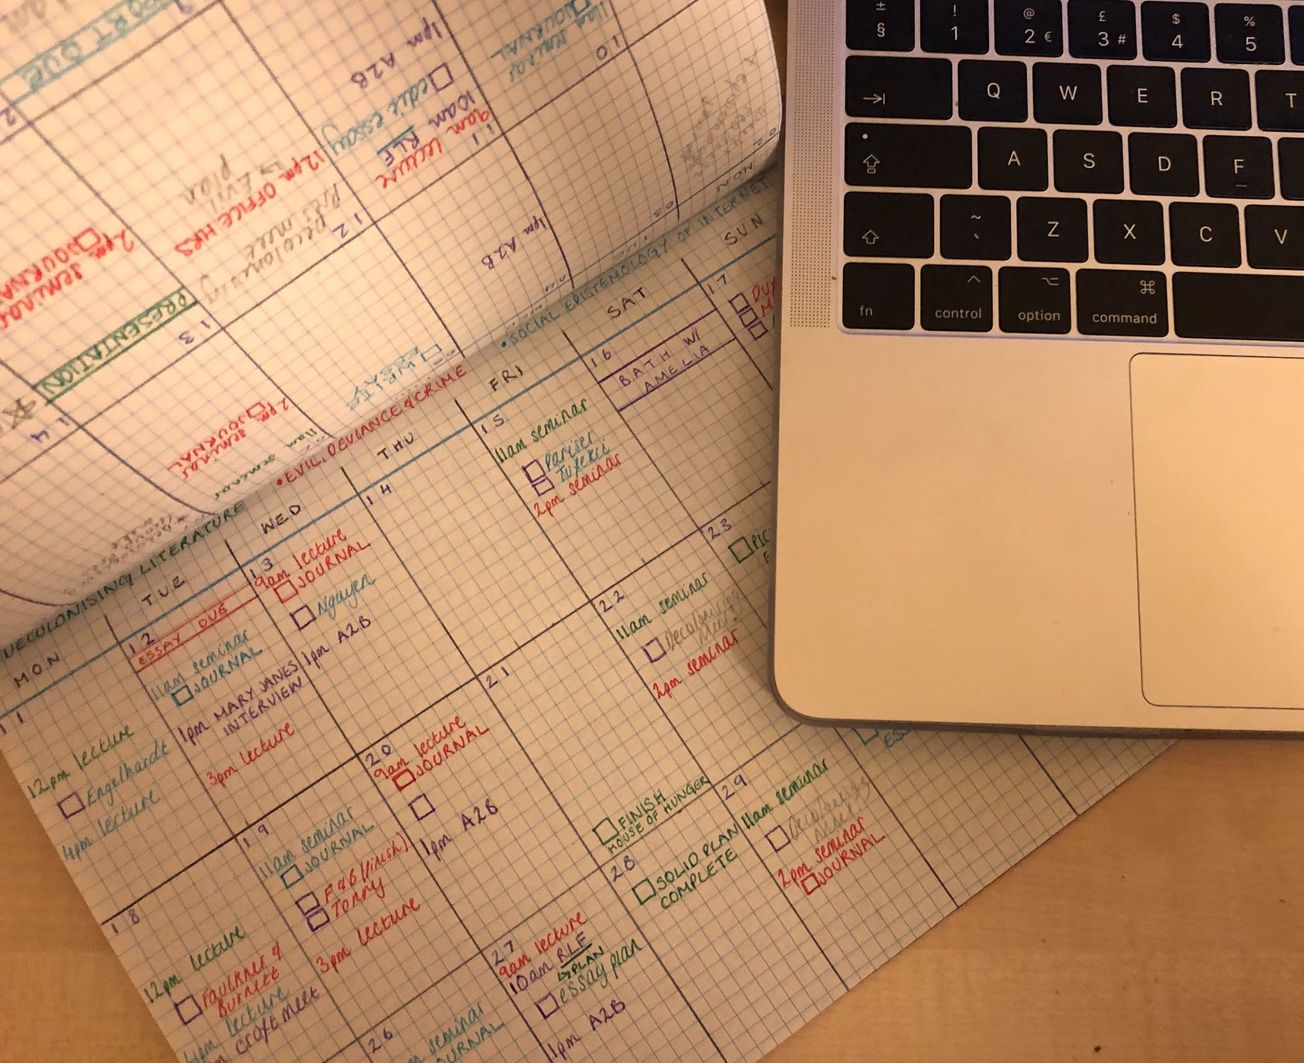 PORT DUE
2pm seminar
JOURNAL
12pm OFFICE HRS
plan
1pm A2B
edit essay
10am RLF
9am lecture
11am seminar
JOURNAL
10
11
12
13
14
PRESENTATION
2pm seminar
JOURNAL
11am seminar
1pm A2B
DECOLONISING LITERATURE
• EVIL, DEVIANCE & CRIME
• SOCIAL EPISTEMOLOGY OF INTERNET
MON
TUE
WED
THU
FRI
SAT
SUN
11
12pm lecture
Engelhardt
4pm lecture
12
ESSAY DUE
11am seminar
JOURNAL
1pm MARY JANES
INTERVIEW
3pm lecture
13
9am lecture
JOURNAL
Nguyen
1pm A2B
14
15
11am seminar
Pariser
Tufekci
2pm seminar
16
BATH W/
AMELIA
17
18
12pm lecture
FAULKNER &
BURNETT
4pm lecture
craft meet
19
11am seminar
JOURNAL
F&B (finish)
Tonny
3pm lecture
20
9am lecture
JOURNAL
1pm A2B
21
FINISH
HOUSE OF HUNGER
22
11am seminar
Decolonising
Mind
2pm seminar
23
26
seminar
JOURNAL
27
9am lecture
10am RLF
↳ PLAN
essay plan
1pm A2B
28
SOLID PLAN
COMPLETE
29
11am seminar
Decolonising
Mind
2pm seminar
JOURNAL
± § ! 1 @ 2 € £ 3 # $ 4 % 5
Q W E R T
A S D F
~ ` Z X C V
fn control option command